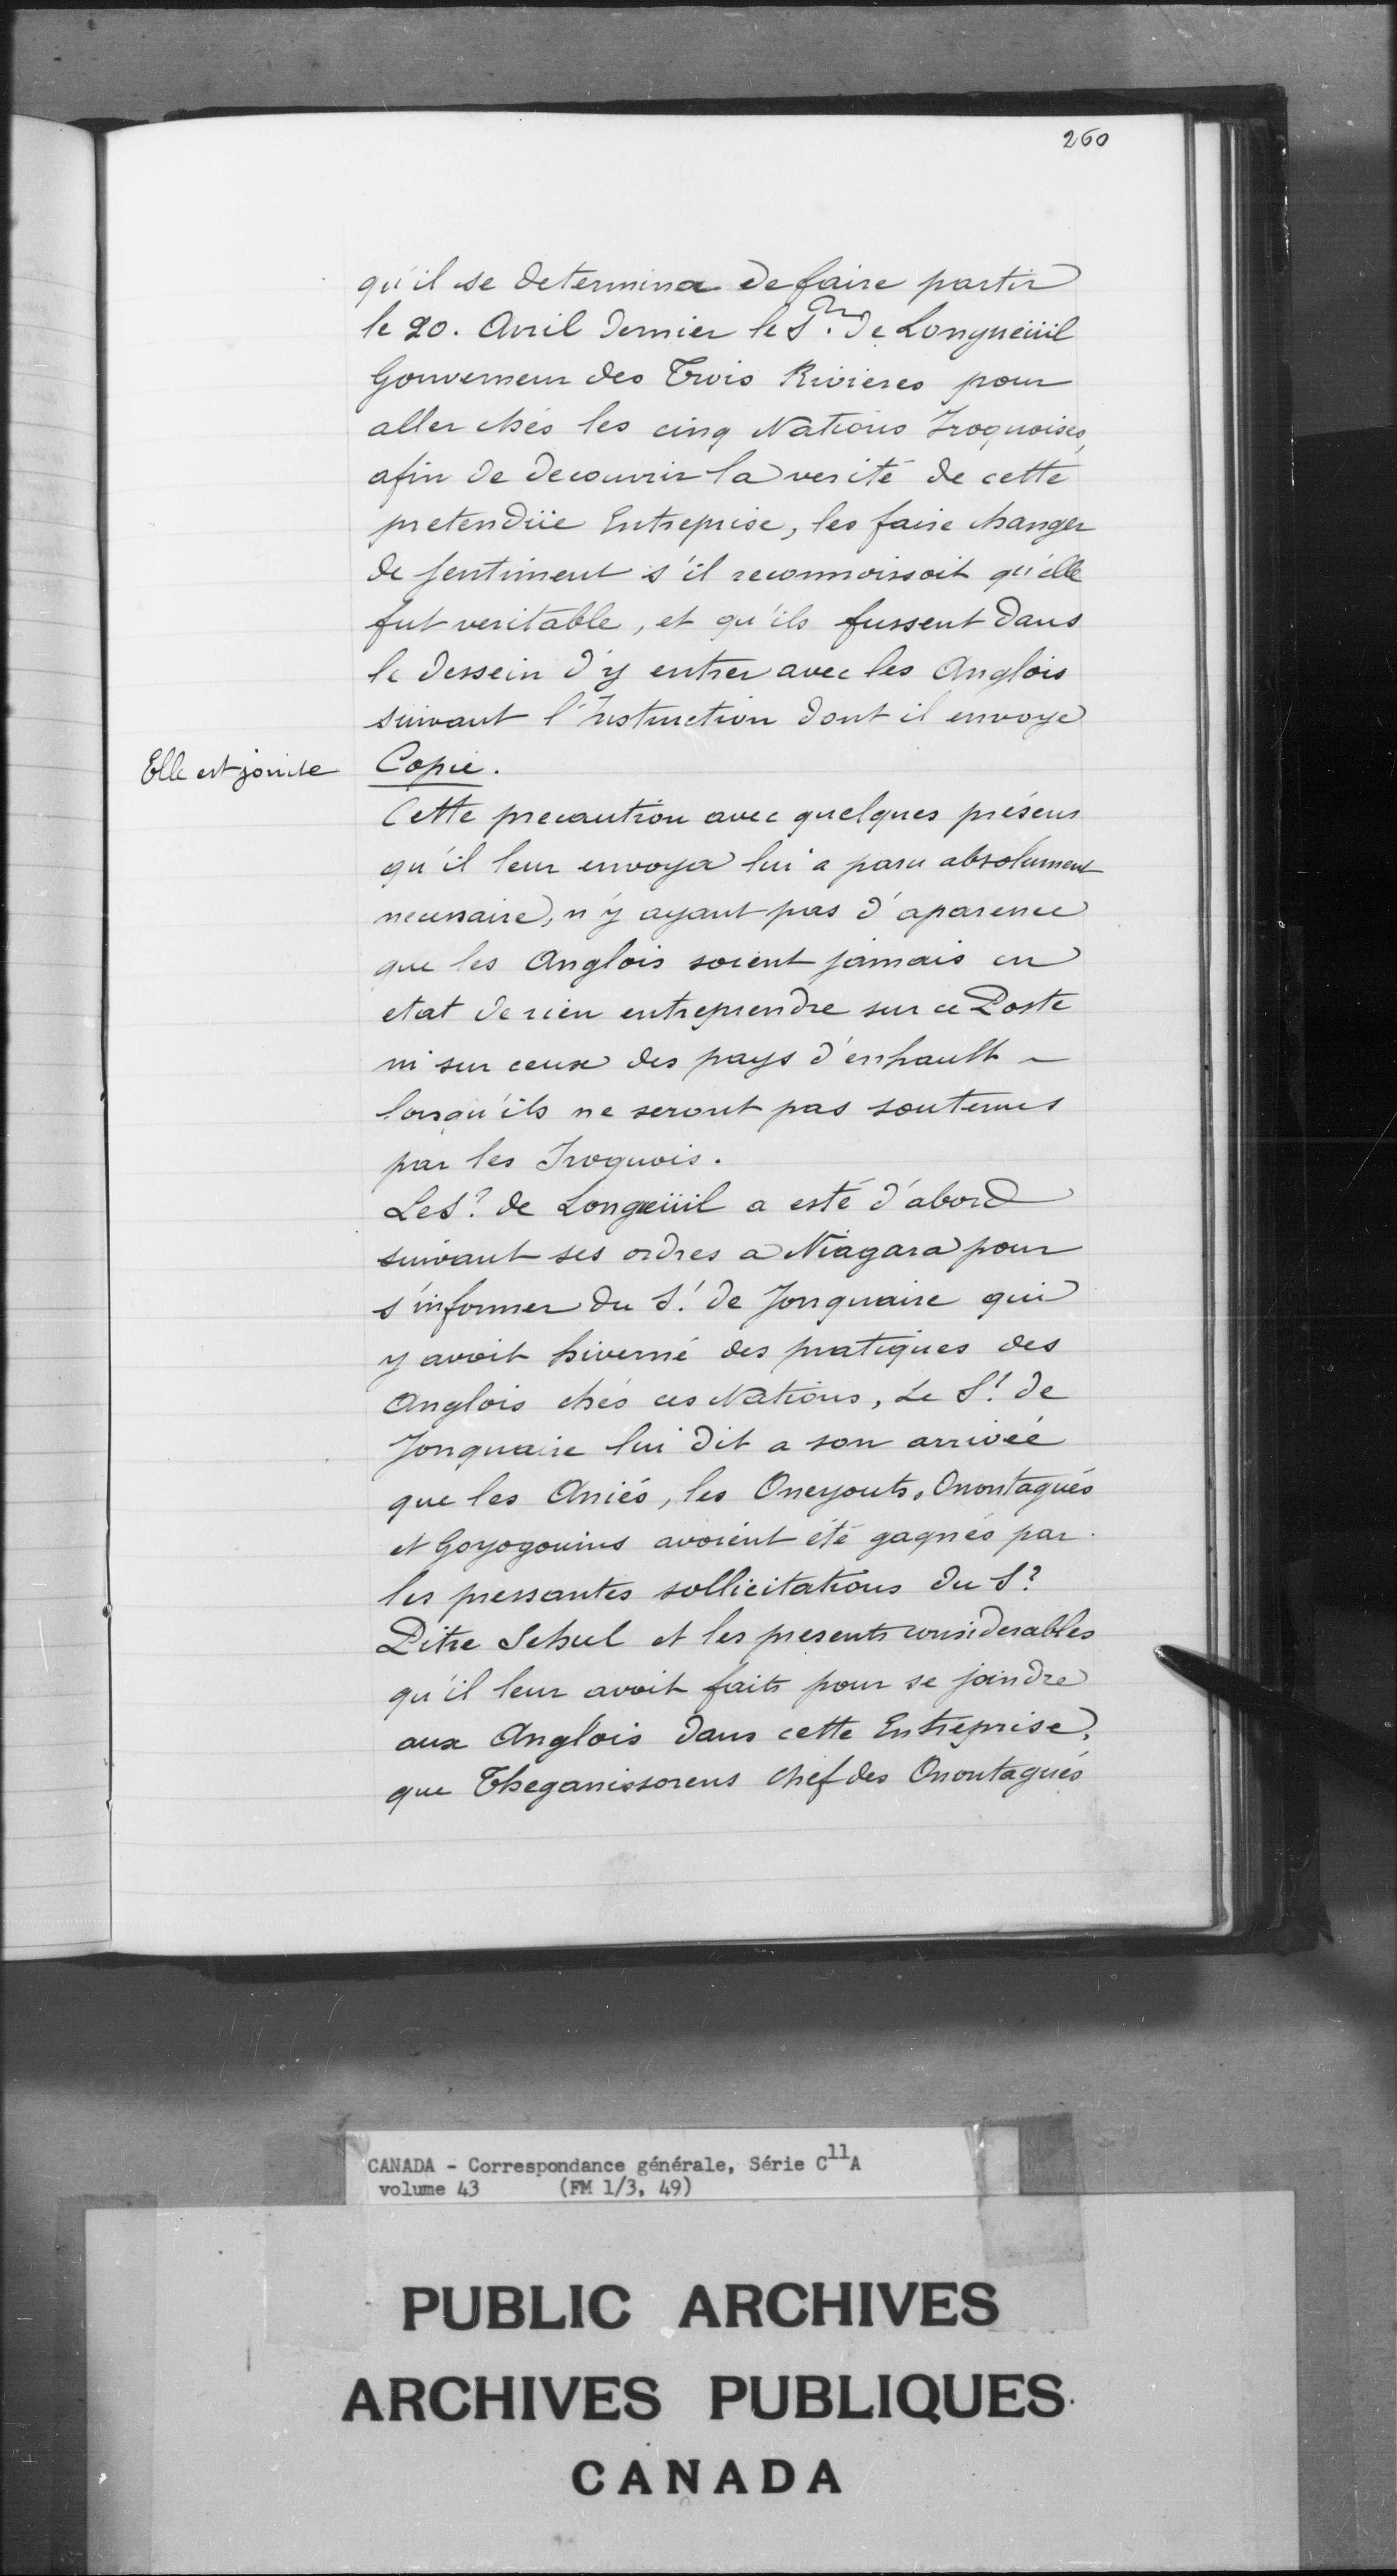 260
qu'il se determina de faire partir
le 20. Avril dernier le Sr. de Longueüil
Gouverneur des Trois Rivieres pour
aller chés les cinq Nations Iroquoises,
afin de decouvrir la verité de cette
pretendüe Entreprise, les faire changer
de sentiment s'il reconnoissoit qu'elle
fut veritable, et qu'ils fussent dans
le dessein d'y entrer avec les Anglois
suivant l'Instruction dont il envoye
Elle est jointe Copie.
Cette precaution avec quelques présens
qu'il leur envoya lui a paru absolument
necessaire, n'y ayant pas d'aparence
que les Anglois soient jamais en
etat de rien entreprendre sur ce Poste
ni sur ceux des pays d'enhault -
lorsqu'ils ne seront pas soutenus
par les Iroquois.
Le Sr. de Longueüil a esté d'abord
suivant ses ordres a Niagara pour
s'informer du Sr. de Jonquaire qui
y avoit hiverné des pratiques des
Anglois chés ces Nations, Le Sr. de
Jonquaire lui dit a son arrivée
que les Aniés, les Oneyouts, Onontagués
et Goyogouins avoient été gagnés par
les pressantes sollicitations du Sr.
Pitre Schul et les presents considerables
qu'il leur avoit faits pour se joindre
aux Anglois dans cette Entreprise,
que Theganissorens chef des Onontagués
CANADA - Correspondance générale, Série C11A
volume 43 (FM 1/3, 49)
PUBLIC ARCHIVES
ARCHIVES PUBLIQUES
CANADA